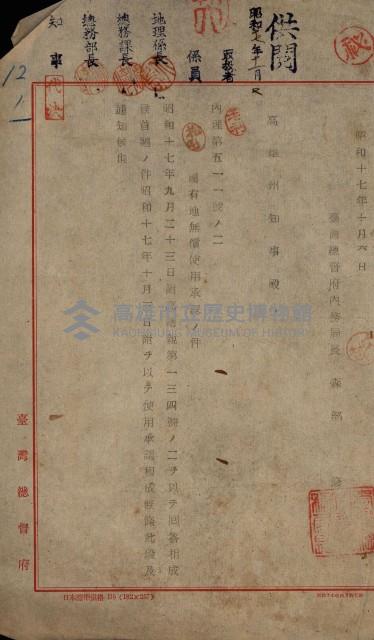 供閲
昭和十七年十月六日
臺灣總督府內務局長 森部
高雄州知事殿
內理第五一一號ノ二
國有地無償使用承認ノ件
昭和十七年九月二十三日附高總親第一三四號ノ二ヲ以テ回答相成
候首題ノ件昭和十七年十月 日附ヲ以テ使用承認相成候條此段及
通知候也
係員
地理係長
總務課長
總務部長
知事
代決
12/1
臺灣總督府
日本標準規格 B5 (182×257)
高雄市立歷史博物館
KAOHSIUNG MUSEUM OF HISTORY